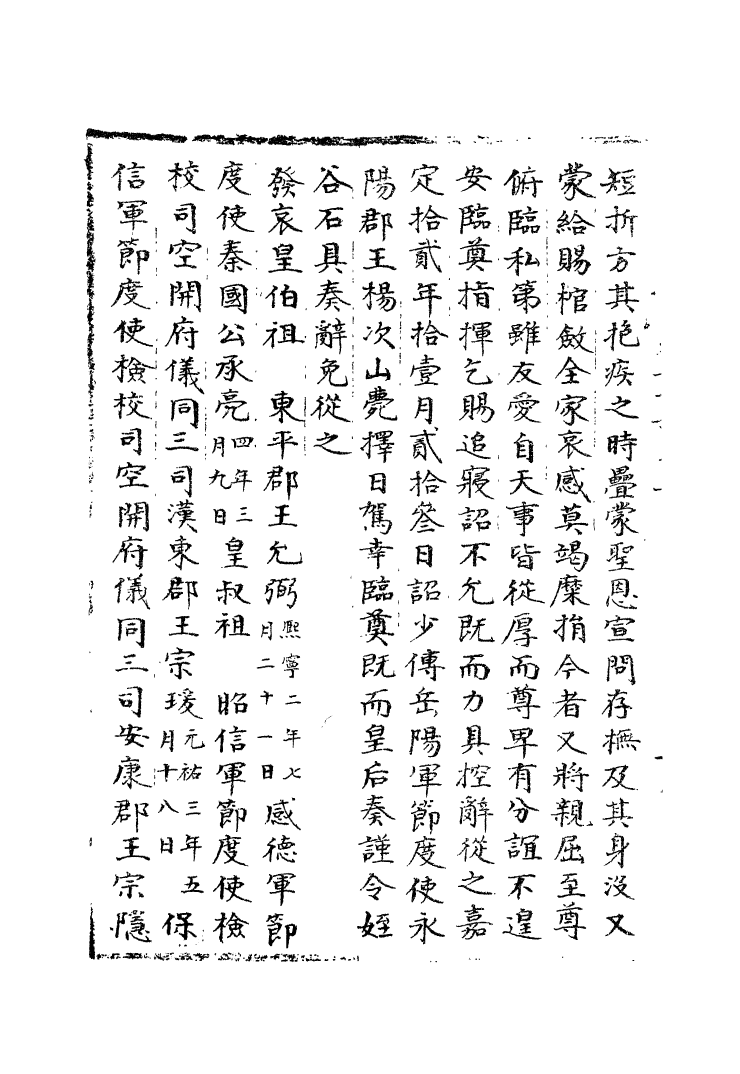 短折方其抱疾之時疊蒙聖恩宣問存撫及其身沒又
蒙給賜棺斂全家哀感莫竭糜捐今者又將親屈至尊
俯臨私第雖友愛自天事皆從厚而尊卑有分誼不遑
安臨奠指揮乞賜追寢詔不允既而力具控辭從之嘉
定拾貳年拾壹月貳拾叄日詔少傅岳陽軍節度使永
陽郡王楊次山薨擇日駕幸臨奠既而皇后奏謹令姪
谷石具奏辭免從之
發哀皇伯祖　東平郡王允弼熙寧二年七月二十一日感德軍節
度使秦國公承亮四年三月九日皇叔祖　昭信軍節度使檢
校司空開府儀同三司漢東郡王宗瑗元祐三年五月十八日保
信軍節度使檢校司空開府儀同三司安康郡王宗隱